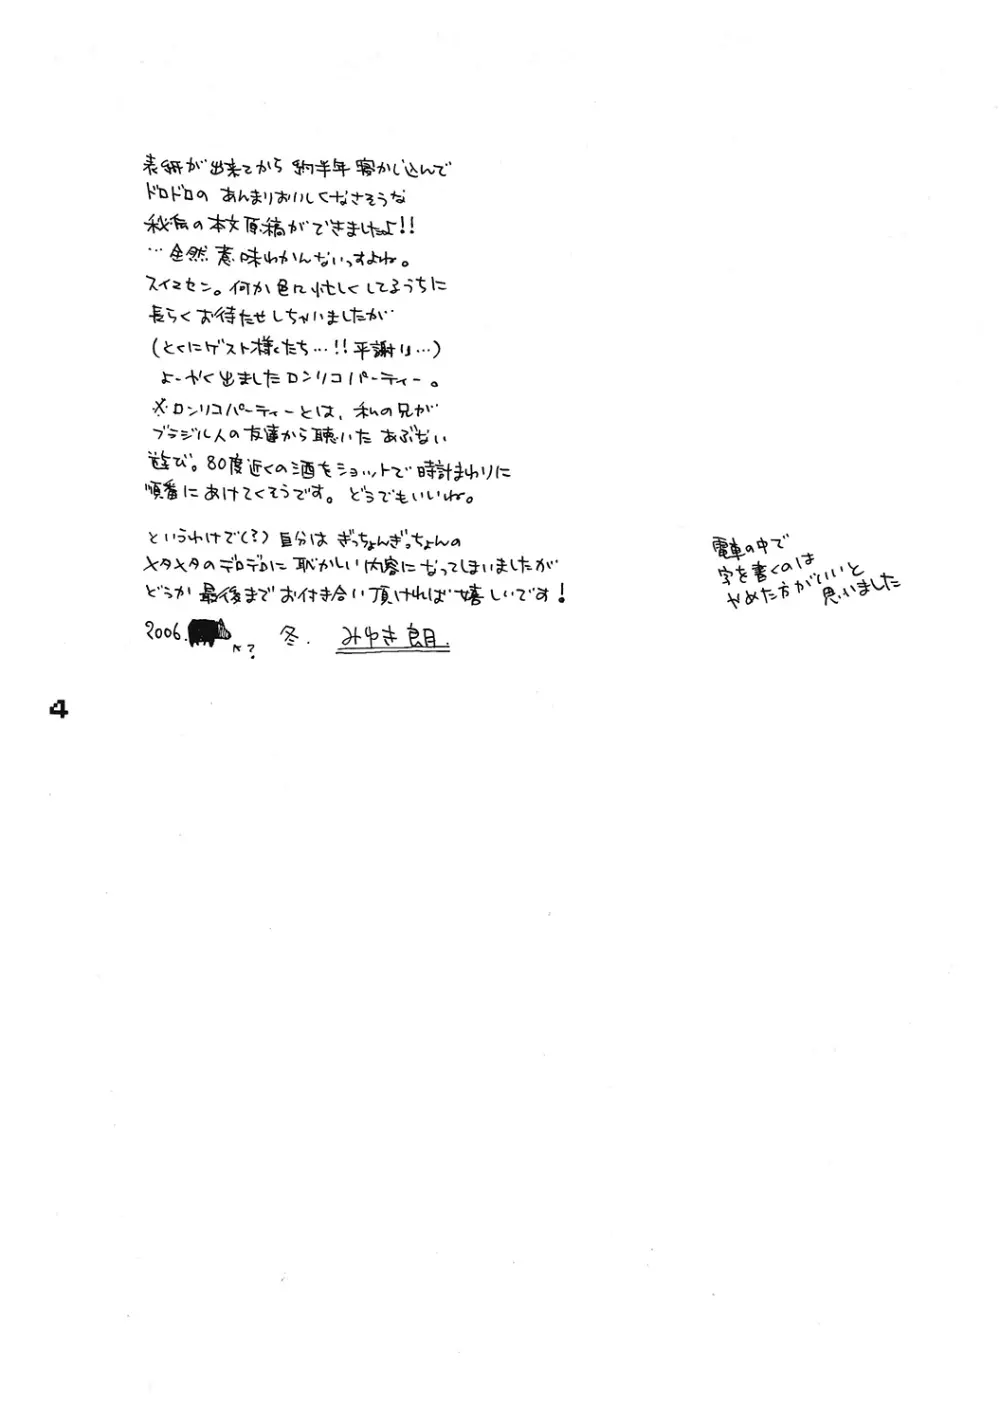 表紙が出来てから 約半年 寝かし込んで
ドロドロの あんまりおいしくなさそうな
秘伝の本文原稿ができましたよ!!
…全然 意味わかんないっすよね。
スイマセン。何か色々忙しくしてるうちに
長らくお待たせしちゃいましたが…
(とくにゲスト様たち…!!平謝り…)
よーやく出ました ロンリコパーティー。
※ロンリコパーティーとは、私の兄が
ブラジル人の友達から聴いた あぶない
遊び。80度近くの酒をショットで時計まわりに
順番にあけてくそうです。どうでもいいね。
というわけで(?) 自分は ぎっちょんぎっちょんの
メタメタのデロデロに 恥かしい内容になってしまいましたが
どうか 最後まで お付き合い 頂ければ 嬉しいです!
2006. 冬. みやき 良月.
←?
電車の中で
字を書くのは
やめた方がいいと
思いました
4